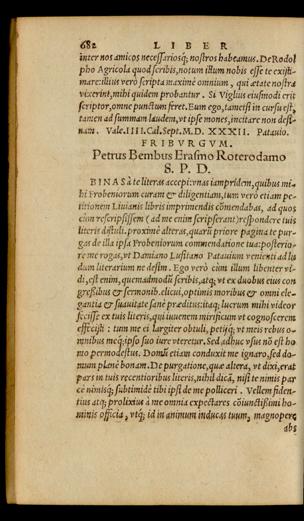 682 LIBER
inter nos amicos necessariosq́; nostros habeamus. De Rodol
pho Agricola quod scribis, notum illum nobis esse te existi-
mare: illius verò scripta maximè omnium, qui ætate nostra
vixerint, mihi quidem probantur. Si Viglius eiusmodi erit
scriptor, omne punctum feret. Eum ego, tametsi in cursu est,
tamen ad summam laudem, vt ipse mones, incitare non desi-
nam. Vale. IIII. Cal. Sept. M. D. XXXII. Patauio.
FRIBVRGVM.
Petrus Bembus Erasmo Roterodamo
S. P. D.
BINAS à te literas accepi: vnas iampridem, quibus mi-
hi Frobeniorum curam & diligentiam, tum verò etiam pe-
titionem Liuianis libris imprimendis cōmendabas, ad quos
cùm rescripsissem (ad me enim scripserant) respondere tuis
literis distuli. proximè alteras, quarū priore pagina te pur-
gas de illa ipsa Frobeniorum commendatione tua: posterio-
re me rogas, vt Damiano Lusitano Patauium venienti ad lu
dum literarium ne desim. Ego verò cùm illum libenter vi-
di, est enim, quemadmodū scribis, atq; vt ex duobus eius con
greßibus & sermonib. elicui, optimis moribus & omni ele-
gantia & suauitate sanè præditus: itaq; lucrum mihi videor
fecisse ex tuis literis, qui iuuenem mirificum vt cognoscerem
effecisti: tum me ei largiter obtuli, petijq́; vt meis rebus o-
mnibus mecq́; ipso suo iure vteretur. Sed adhuc vsus nō est ho
mo permodestus. Domū etiam conduxit me ignaro, sed do-
mum planè bonam. De purgatione, quæ altera, vt dixi, erat
pars in tuis recentioribus literis, nihil dicā, nisi te nimis par
cè nimisq́; subtimidè tibi ipsi de me polliceri. Vellem fiden-
tius atq; prolixius à me omnia expectares cōiunctißimi ho-
minis officia, vtq́; id in animum inducas tuum, magnopere
abs